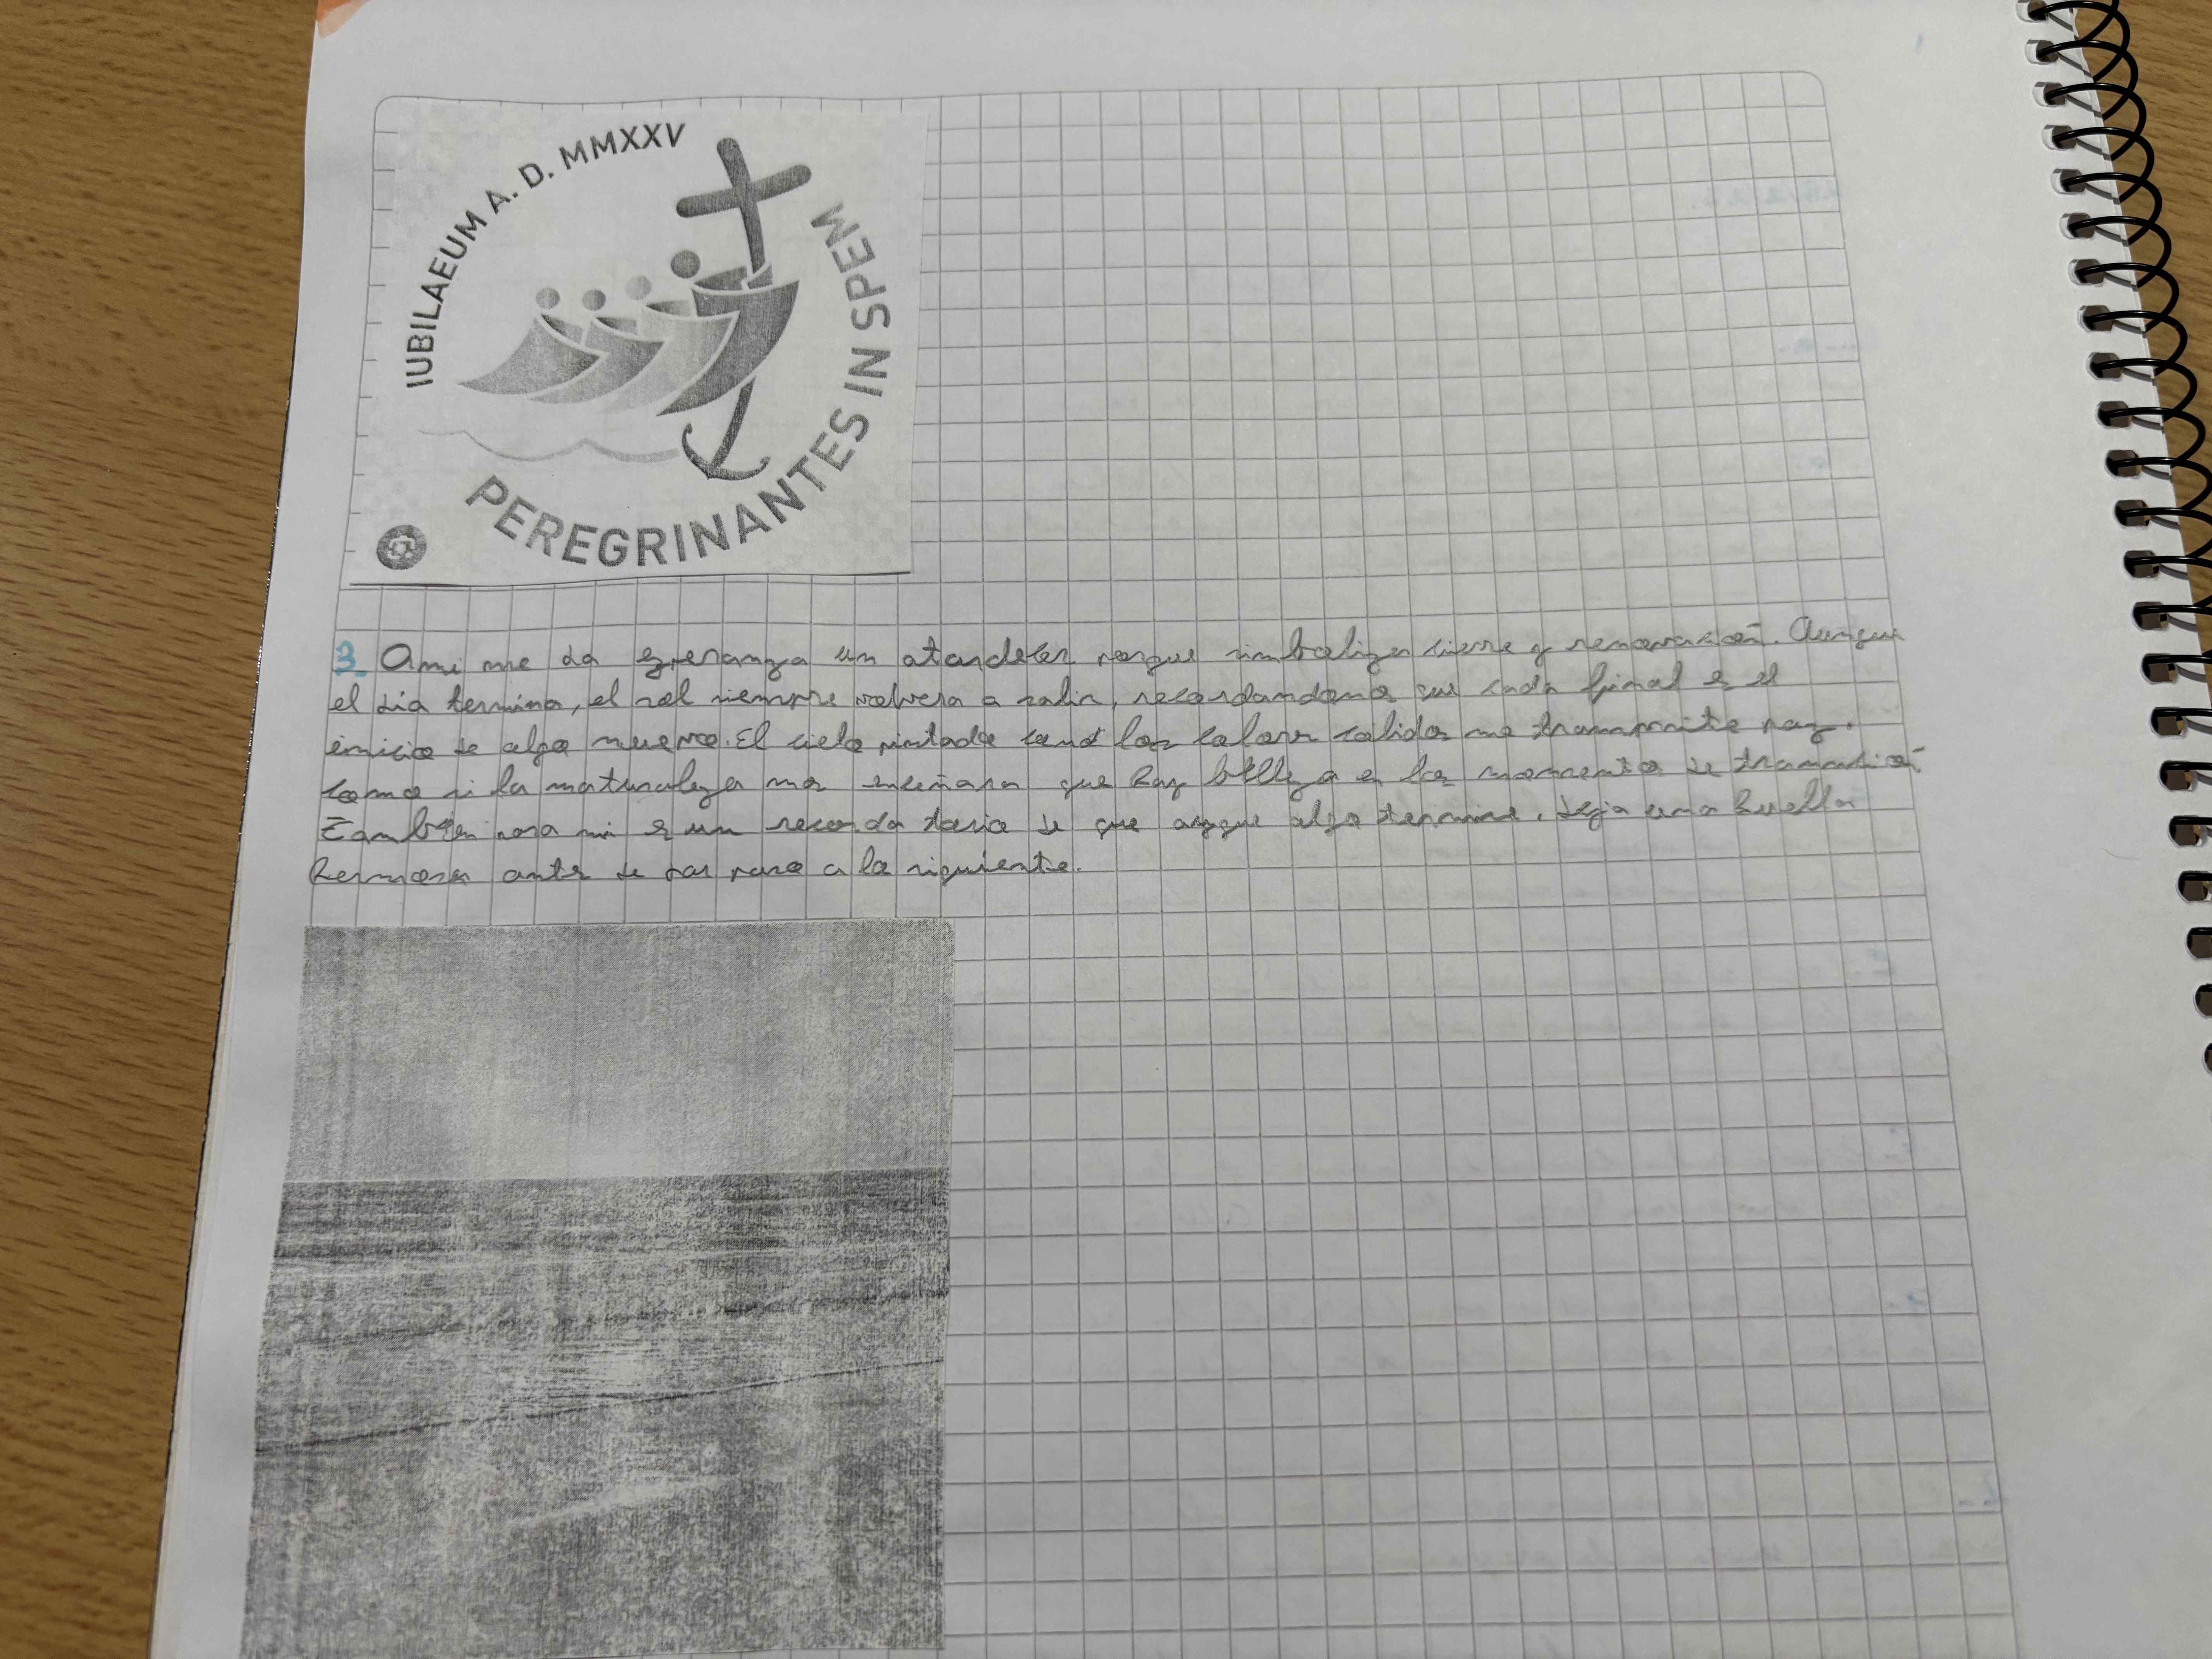 IUBILAEUM A. D. MMXXV
PEREGRINANTES IN SPEM
3. A mi me da esperanza un atardecer porque simboliza cierre y renovación. Aunque
el día termina, el sol siempre volvera a salir, recordandonos que cada final es el
inicio de algo nuevo. El cielo pintado con los colores calidos me transmite paz,
como si la naturaleza nos enseñara que hay belleza en los momentos de transición.
Tambien para mi es un recordatorio de que algo termine, deja una huella
hermosa antes de dar paso a lo siguiente.